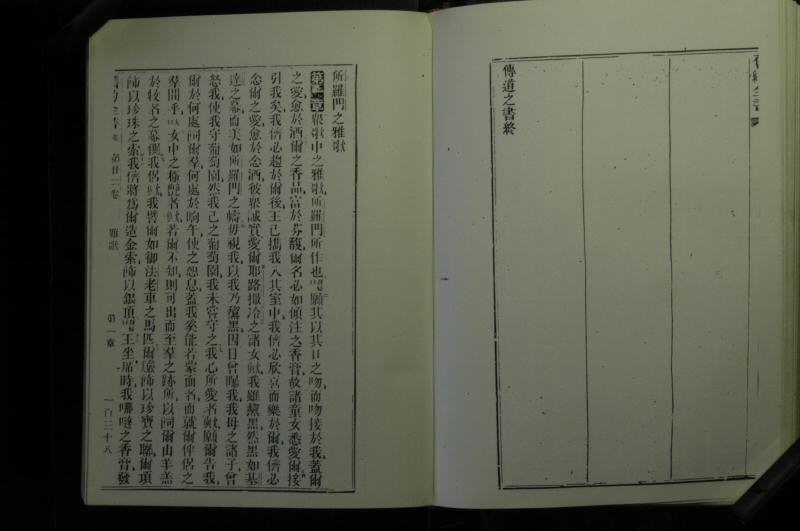 傳道之書終
所羅門之雅歌
第一章 衆歌中之雅歌所羅門所作也願其以其口之吻而吻接於我蓋爾
之愛愈於酒爾之香品富於芬馥爾名必如傾注之香膏故諸童女悉愛爾接
引我矣我儕必趨於爾後王已擕我入其室中我儕必欣喜而樂於爾我儕必
念爾之愛愈於念酒彼衆誠實愛爾耶路撒冷之諸女歟我雖黧黑然美如基
達之幕而美如所羅門之幃毋視我以我乃黧黑因日曾曬我我母之諸子曾
怒我使我守葡萄園然我己之葡萄園我未嘗守之我心所愛者歟願爾告我
爾於何處飼爾羣何處於晌午使之憩息蓋我奚能若蒙面者而就爾伴侶之
羣間乎女中之極艷者歟若爾不知則可出而至羣之跡所以飼爾山羊羔
於牧者之幕側我侶歟我譬爾如御法老車之馬匹爾臉飾以珍寶之聯爾項
飾以珍珠之索我儕將爲爾造金索飾以銀頂王坐席時我哪噠之香膏發
第廿二卷 雅歌 第一章 一百三十八